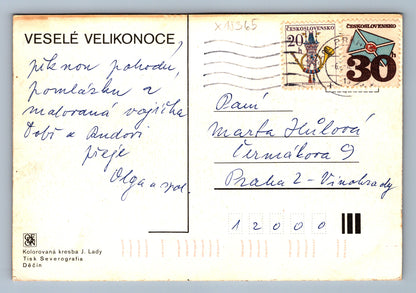 x18365
VESELÉ VELIKONOCE,
pěknou pohodu,
pomlázku a
malovaná vajíčka
Tobě a Andovi
přeje
Olga a spol.
ČESKOSLOVENSKO
20
ČESKOSLOVENSKO
30
Paní
Marta Hůlová
Čermákova 9
Praha 2 - Vinohrady
12000
Kolorovaná kresba J. Lady
Tisk Severografia
Děčín